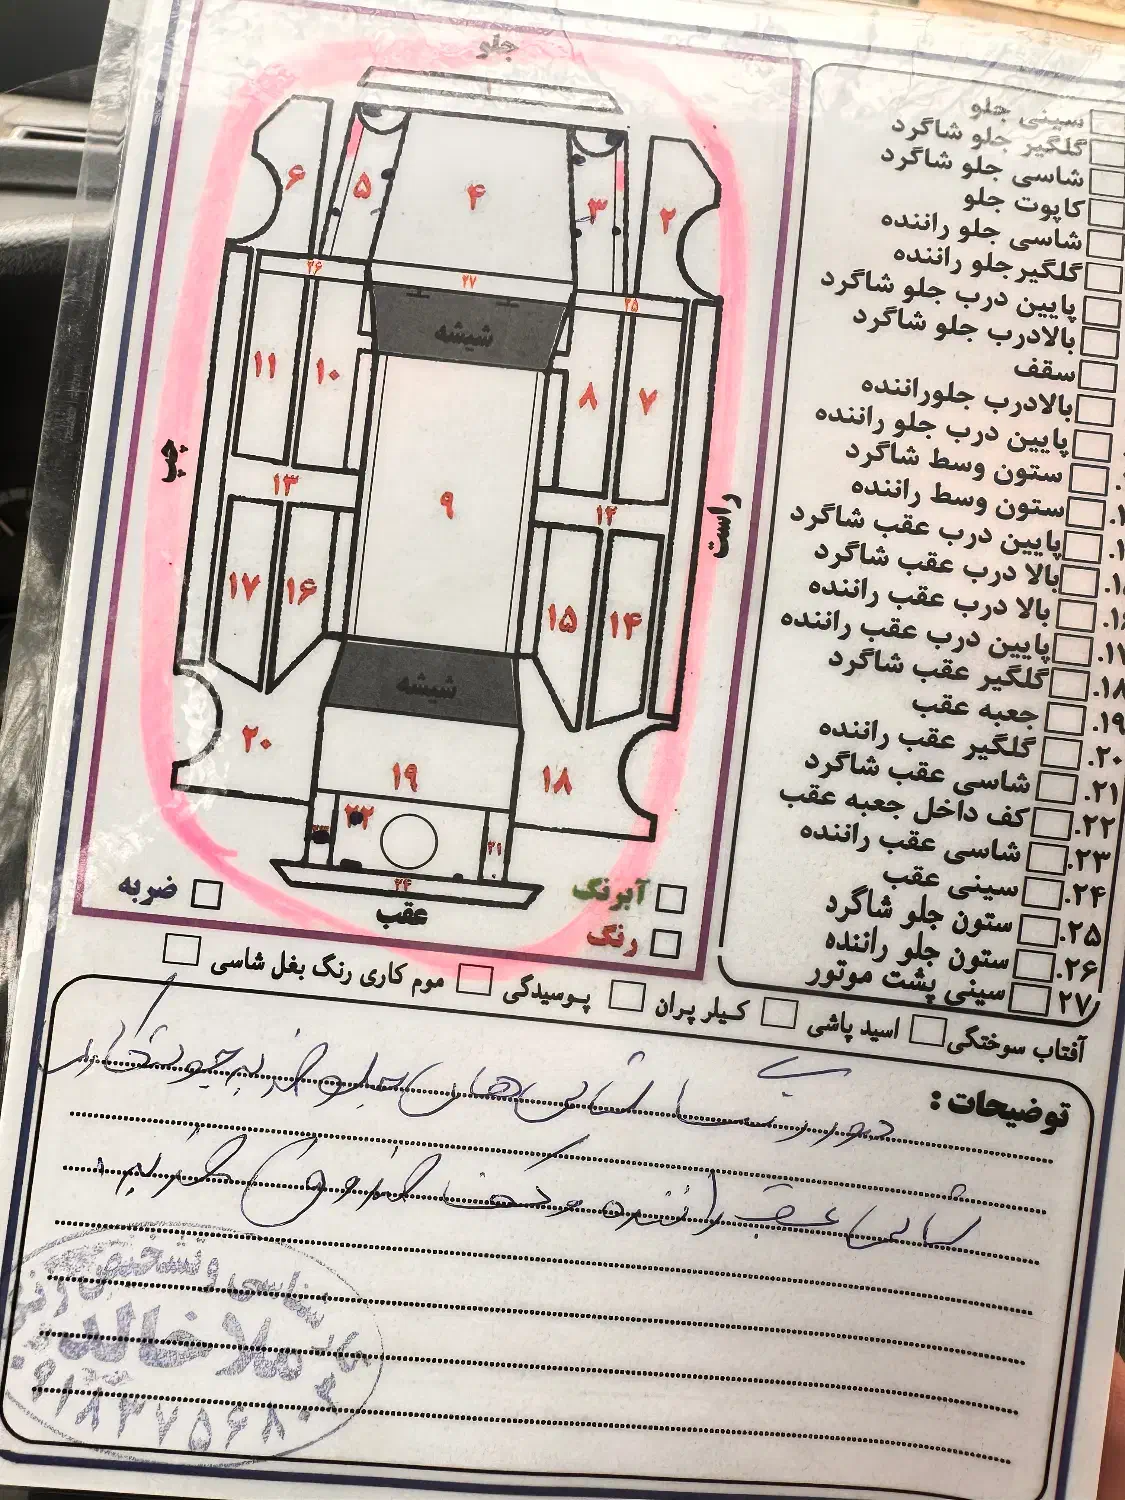 جلو
۶
۵
۴
۳
۲
۲۶
۲۷
۲۵
شیشه
۱۱
۱۰
۸
۷
چپ
راست
۱۳
۹
۱۲
۱۷
۱۶
۱۵
۱۴
شیشه
۲۰
۱۹
۱۸
۲۲
۲۱
۲۴
عقب
ضربه
آبرنگ
رنگ
سینی جلو
گلگیر جلو شاگرد
شاسی جلو شاگرد
کاپوت جلو
شاسی جلو راننده
گلگیر جلو راننده
پایین درب جلو شاگرد
بالادرب جلو شاگرد
سقف
بالادرب جلوراننده
پایین درب جلو راننده
ستون وسط شاگرد
ستون وسط راننده
پایین درب عقب شاگرد
بالا درب عقب شاگرد
بالا درب عقب راننده
۱۷. پایین درب عقب راننده
۱۸. گلگیر عقب شاگرد
۱۹. جعبه عقب
۲۰. گلگیر عقب راننده
۲۱. شاسی عقب شاگرد
۲۲. کف داخل جعبه عقب
۲۳. شاسی عقب راننده
۲۴. سینی عقب
۲۵. ستون جلو شاگرد
۲۶. ستون جلو راننده
۲۷ سینی پشت موتور
آفتاب سوختگی اسید پاشی کیلر پران پوسیدگی موم کاری رنگ بغل شاسی
توضیحات:
شاسی های جلو ضربه
شاسی عقب راننده و کف صندوق ضربه
ملا خالد